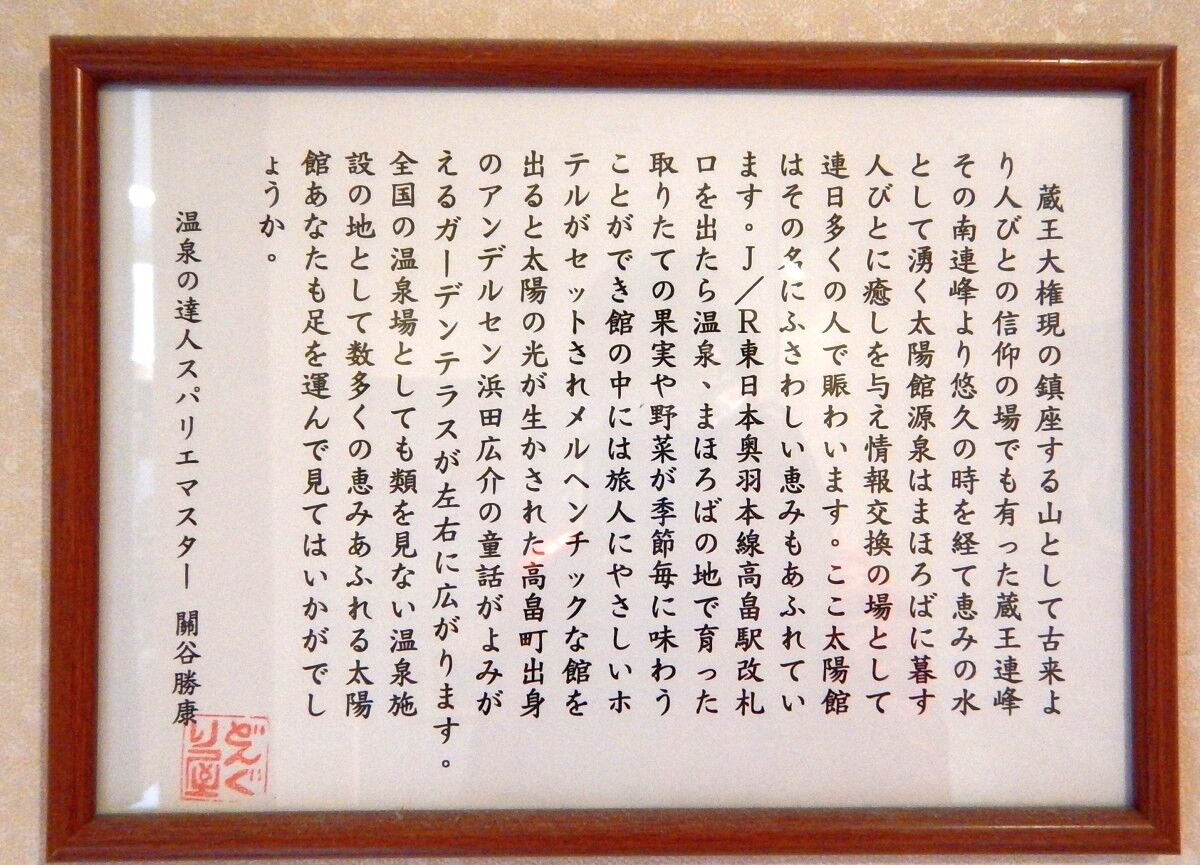 蔵王大権現の鎮座する山として古来よ
り人びとの信仰の場でも有った蔵王連峰
その南連峰より悠久の時を経て恵みの水
として湧く太陽館源泉はまほろばに暮す
人びとに癒しを与え情報交換の場として
連日多くの人で賑わいます。ここ太陽館
はその名にふさわしい恵みもあふれてい
ます。J/R東日本奥羽本線高畠駅改札
口を出たら温泉、まほろばの地で育った
取りたての果実や野菜が季節毎に味わう
ことができ館の中には旅人にやさしいホ
テルがセットされメルヘンチックな館を
出ると太陽の光が生かされた高畠町出身
のアンデルセン浜田広介の童話がよみが
えるガーデンテラスが左右に広がります。
全国の温泉場としても類を見ない温泉施
設の地として数多くの恵みあふれる太陽
館あなたも足を運んで見てはいかがでし
ょうか。
温泉の達人スパリエマスター 關谷勝康
どんぐ
り